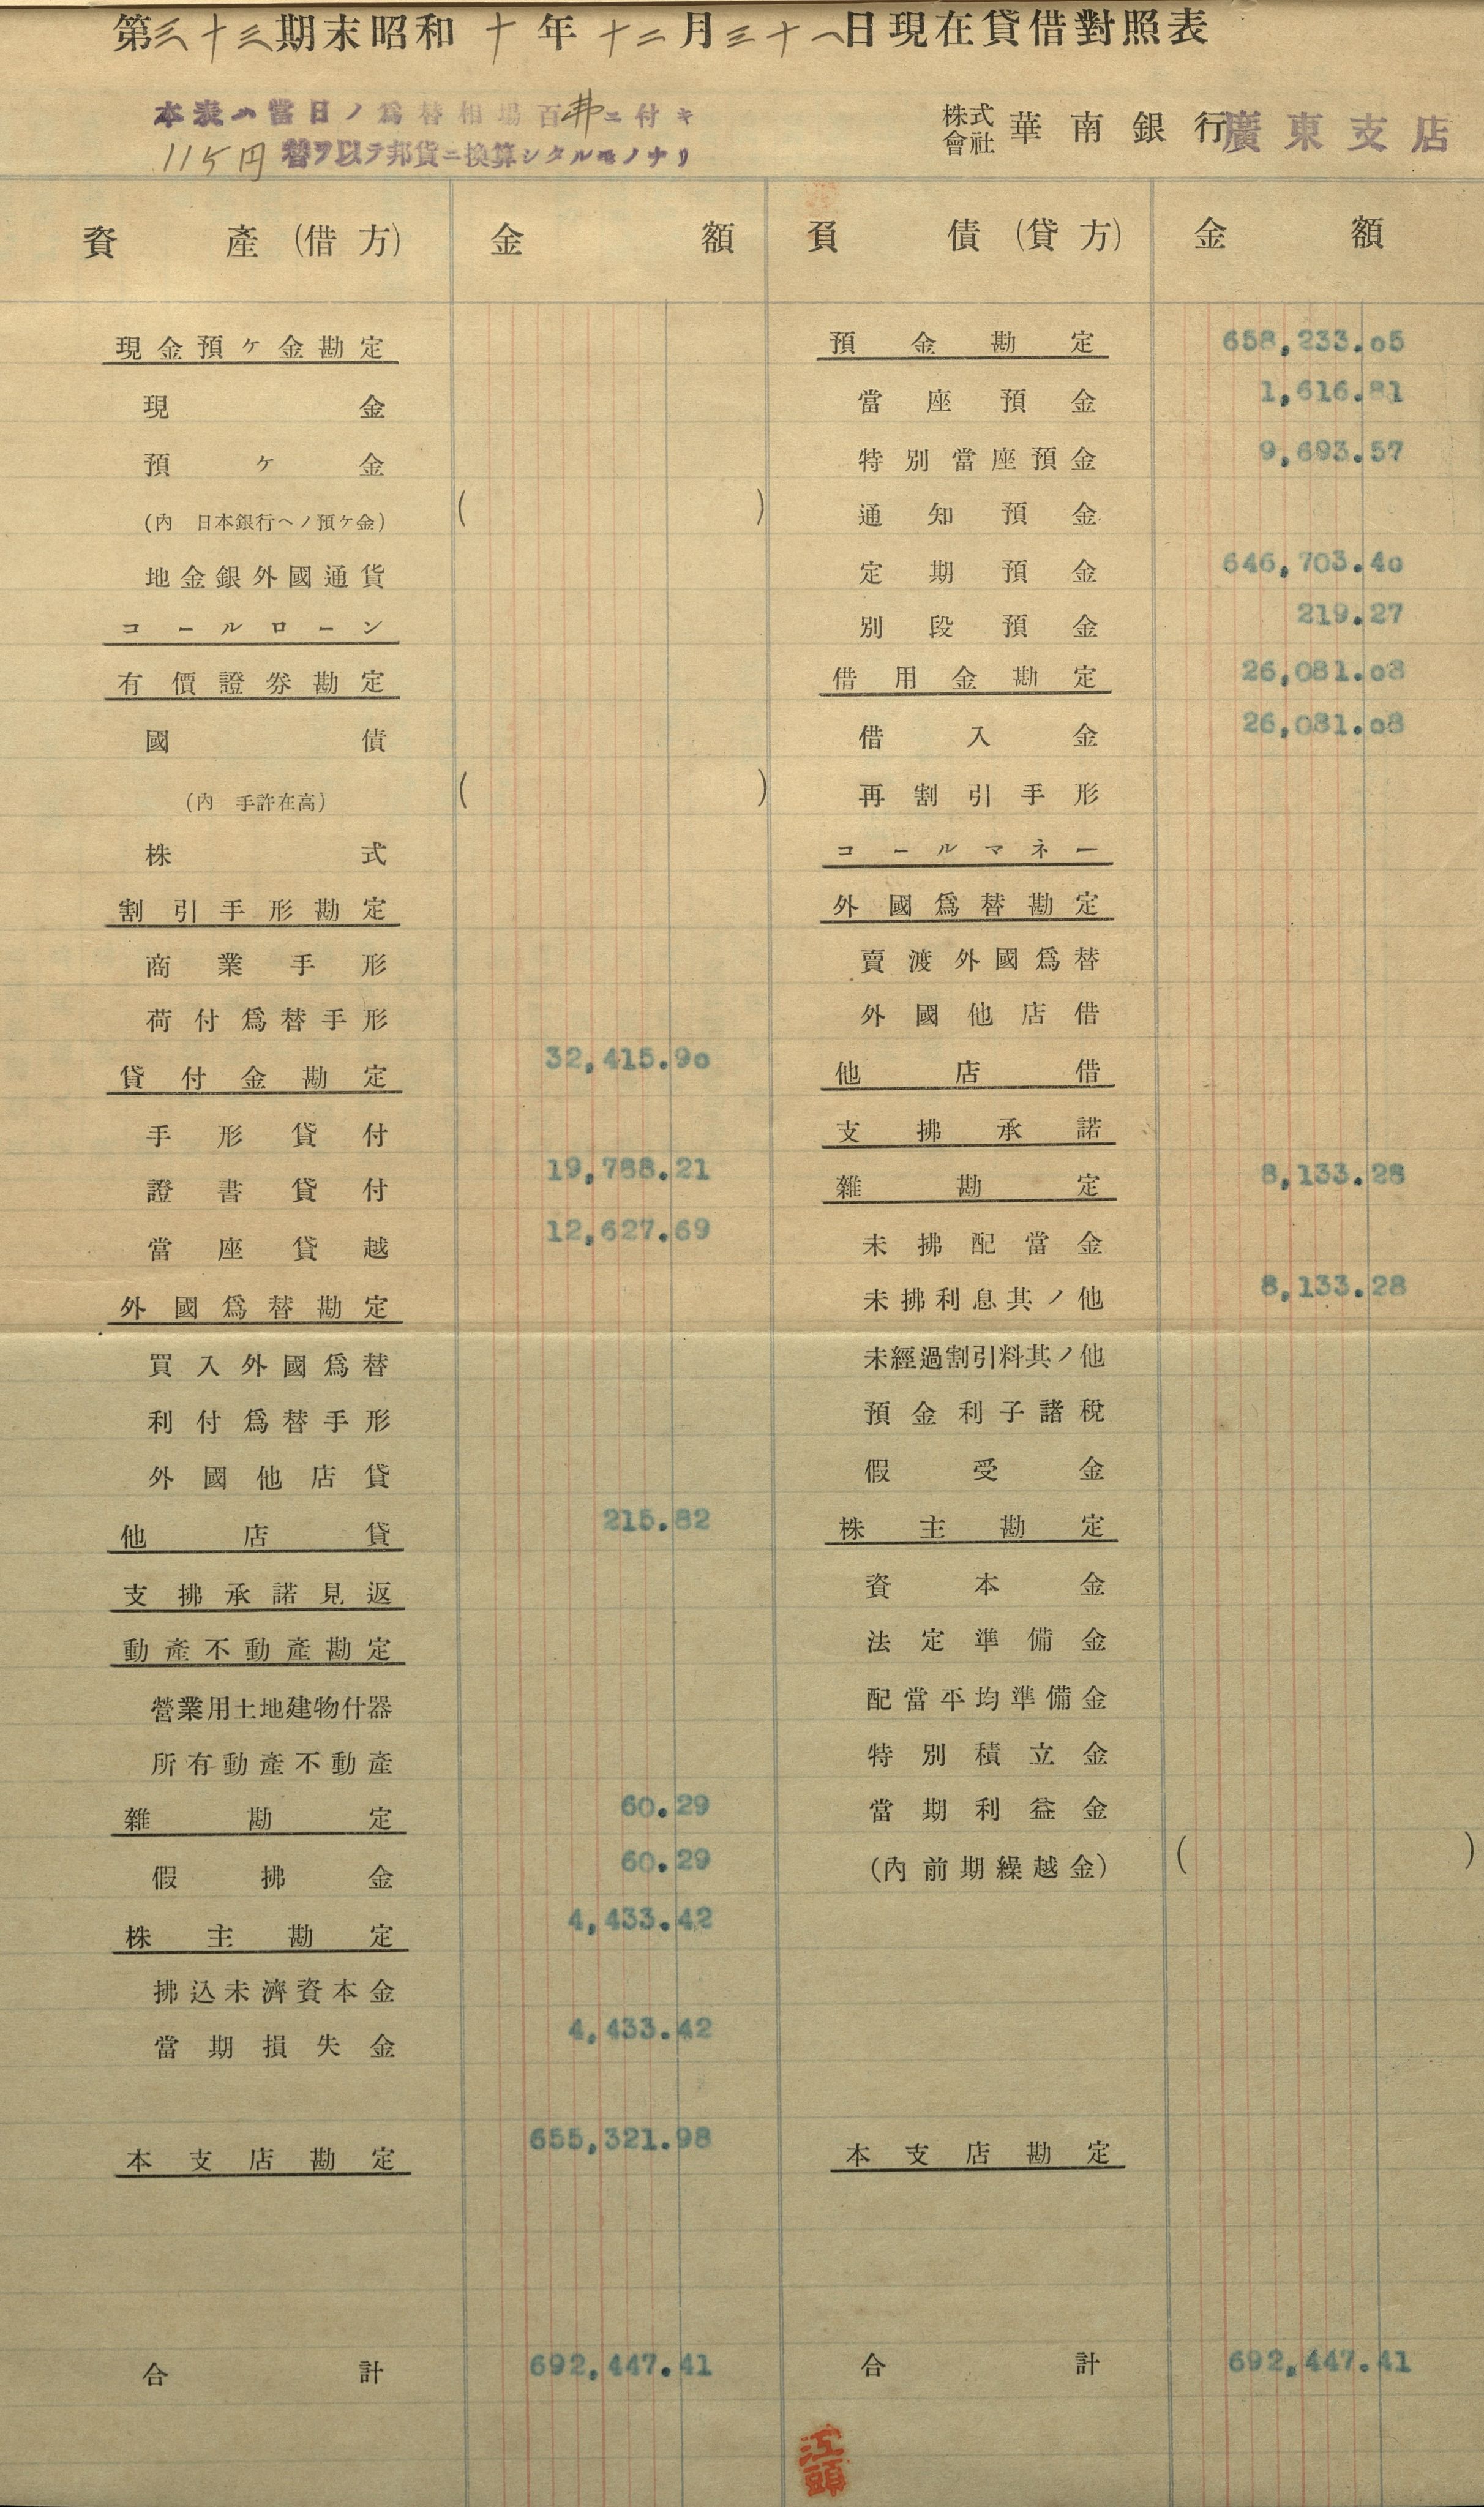 第三十三期末昭和十年十二月三十一日現在貸借對照表
本表ハ當日ノ爲替相場百弗ニ付キ
115円替ヲ以テ邦貨ニ換算シタルモノナリ
株式會社華南銀行廣東支店
資產(借方) 金額 負債(貸方) 金額
現金預ケ金勘定 預金勘定 658,233.05
現金 當座預金 1,616.81
預ケ金 特別當座預金 9,693.57
(內 日本銀行ヘノ預ケ金) ( ) 通知預金
地金銀外國通貨 定期預金 646,703.40
コールローン 別段預金 219.27
有價證券勘定 借用金勘定 26,081.08
國債 借入金 26,081.08
(內 手許在高) ( ) 再割引手形
株式 コールマネー
割引手形勘定 外國爲替勘定
商業手形 賣渡外國爲替
荷付爲替手形 外國他店借
貸付金勘定 32,415.90 他店借
手形貸付 支拂承諾
證書貸付 19,788.21 雜勘定 8,133.28
當座貸越 12,627.69 未拂配當金
外國爲替勘定 未拂利息其ノ他 8,133.28
買入外國爲替 未經過割引料其ノ他
利付爲替手形 預金利子諸稅
外國他店貸 假受金
他店貸 215.82 株主勘定
支拂承諾見返 資本金
動產不動產勘定 法定準備金
營業用土地建物什器 配當平均準備金
所有動產不動產 特別積立金
雜勘定 60.29 當期利益金
假拂金 60.29 (內前期繰越金) ( )
株主勘定 4,433.42
拂込未濟資本金
當期損失金 4,433.42
本支店勘定 655,321.98 本支店勘定
合計 692,447.41 合計 692,447.41
江頭